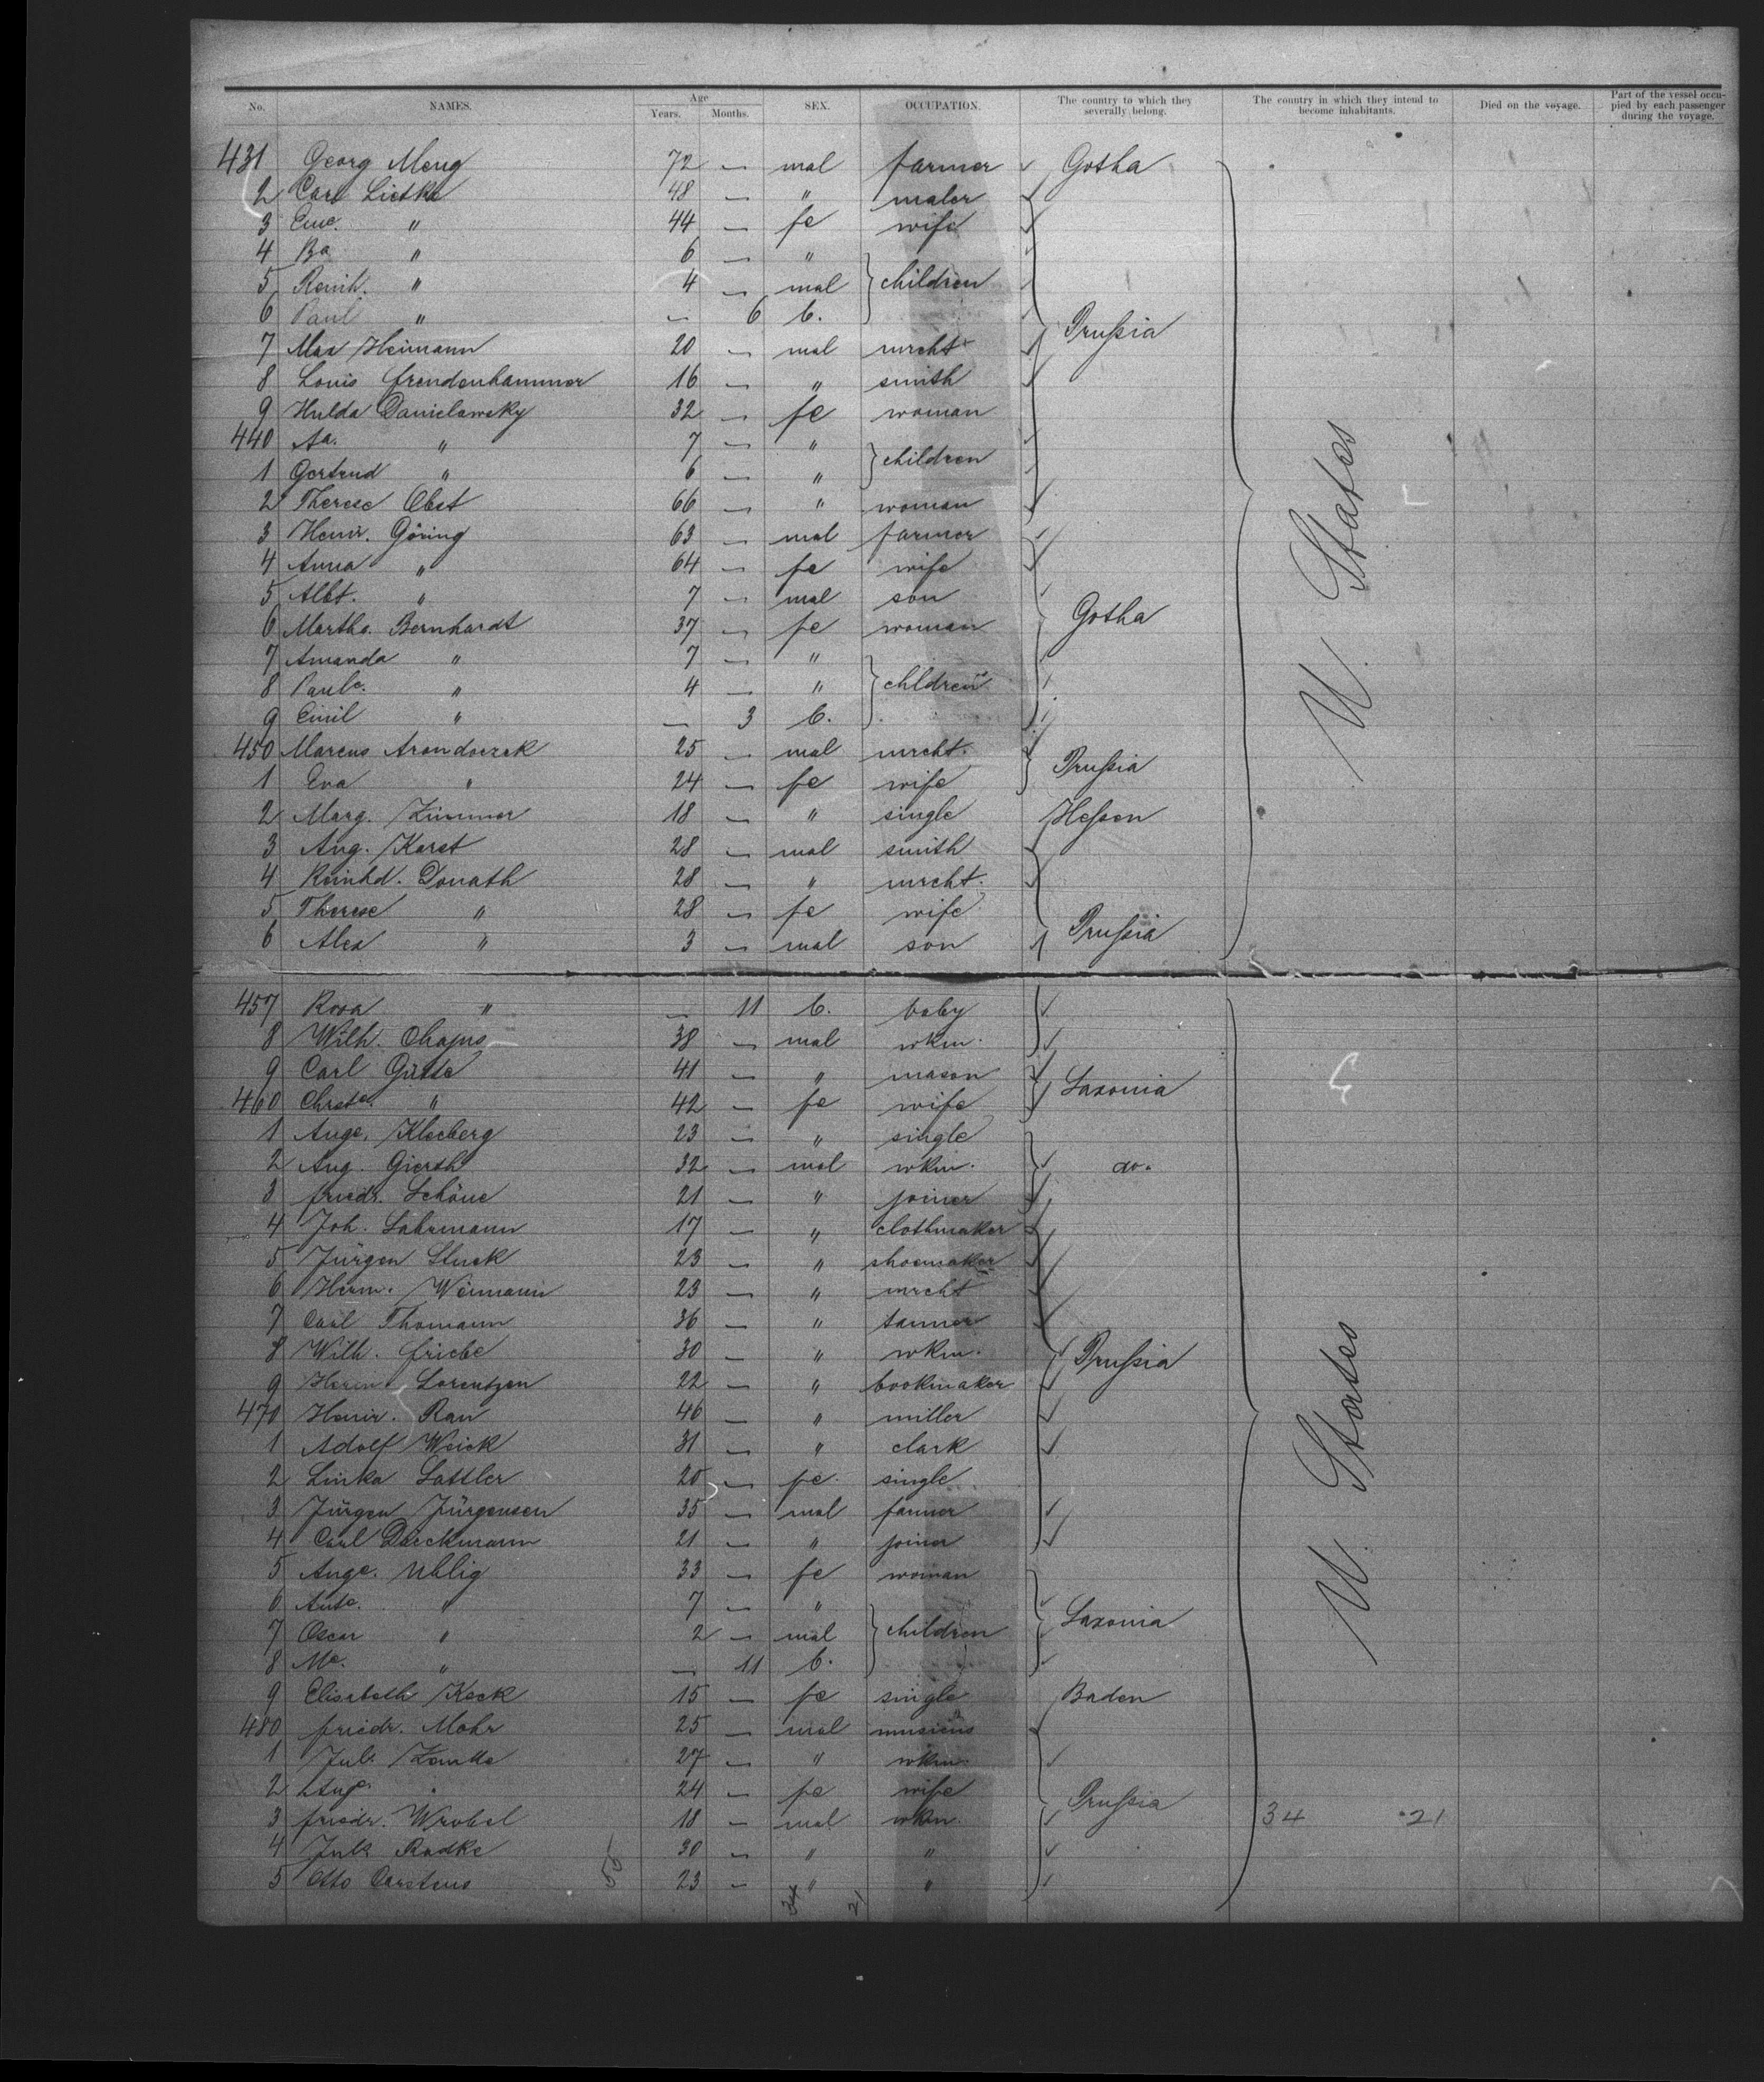 No. NAMES. Age Years. Months. SEX. OCCUPATION. The country to which they severally belong. The country in which they intend to become inhabitants. Died on the voyage. Part of the vessel occupied by each passenger during the voyage.
431 Georg Meng 72 — mal farmer Gotha
2 Carl Lietke 48 — " maler
3 Eme. " 44 — fe wife
4 Ba " 6 — "
5 Reinh. " 4 — mal children
6 Paul " — 6 b.
7 Max Heimann 20 — mal mrcht Prußia
8 Louis Freudenhammer 16 — " smith
9 Hulda Danielowsky 32 — fe woman
440 Aa. " 7 — "
1 Gertrud " 6 — " children
2 Therese Obst 66 — " woman
3 Heinr. Göring 63 — mal farmer
4 Anna " 64 — fe wife
5 Albt. " 7 — mal son
6 Martha Bernhardt 37 — fe woman Gotha
7 Amanda " 7 — "
8 Paule. " 4 — " chldren
9 Emil " — 3 b.
450 Marcus Arondoczek 25 — mal mrcht.
1 Eva " 24 — fe wife Prußia
2 Marg. Zimmer 18 — " single Heßen
3 Aug. Karst 28 — mal smith
4 Reinhd. Donath 28 — " mrcht.
5 Therese " 28 — fe wife
6 Alex " 3 — mal son Prußia
U. States
457 Rosa " — 11 b. baby
8 Wilh. Chapus 38 — mal wkm.
9 Carl Gütte 41 — " mason
460 Chrste. " 42 — fe wife Saxonia
1 Auge. Kleeberg 23 — " single
2 Aug. Gierth 32 — mal wkm. do.
3 Friedr. Schöne 21 — " joiner
4 Joh. Lahrmann 17 — " clothmaker
5 Jürgen Stuck 23 — " shoemaker
6 Herm. Weimann 23 — " mrcht
7 Carl Thomann 36 — " tanner
8 Wilh. Friebe 30 — " wkm. Prußia
9 Herm. Lorentzen 22 — " bookmaker
470 Heinr. Rau 46 — " miller
1 Adolf Weick 31 — " clark
2 Linka Sattler 20 — fe. single
3 Jürgen Jürgensen 35 — mal farmer
4 Carl Dieckmann 21 — " joiner
5 Auge. Uhlig 33 — fe woman
6 Ante. " 7 — "
7 Oscar " 2 — mal children Saxonia
8 Me. " — 11 b.
9 Elisabeth Keck 15 — fe single Baden
480 Friedr. Mohr 25 — mal musicus
1 Jul. Zemke 27 — " wkm.
2 Auge. " 24 — fe wife
3 Friedr. Wrobel 18 — mal wkm. Prußia 34 21
4 Jul. Radke 30 — " "
5 Otto Carstens 55 23 — " "
U. States
34 21